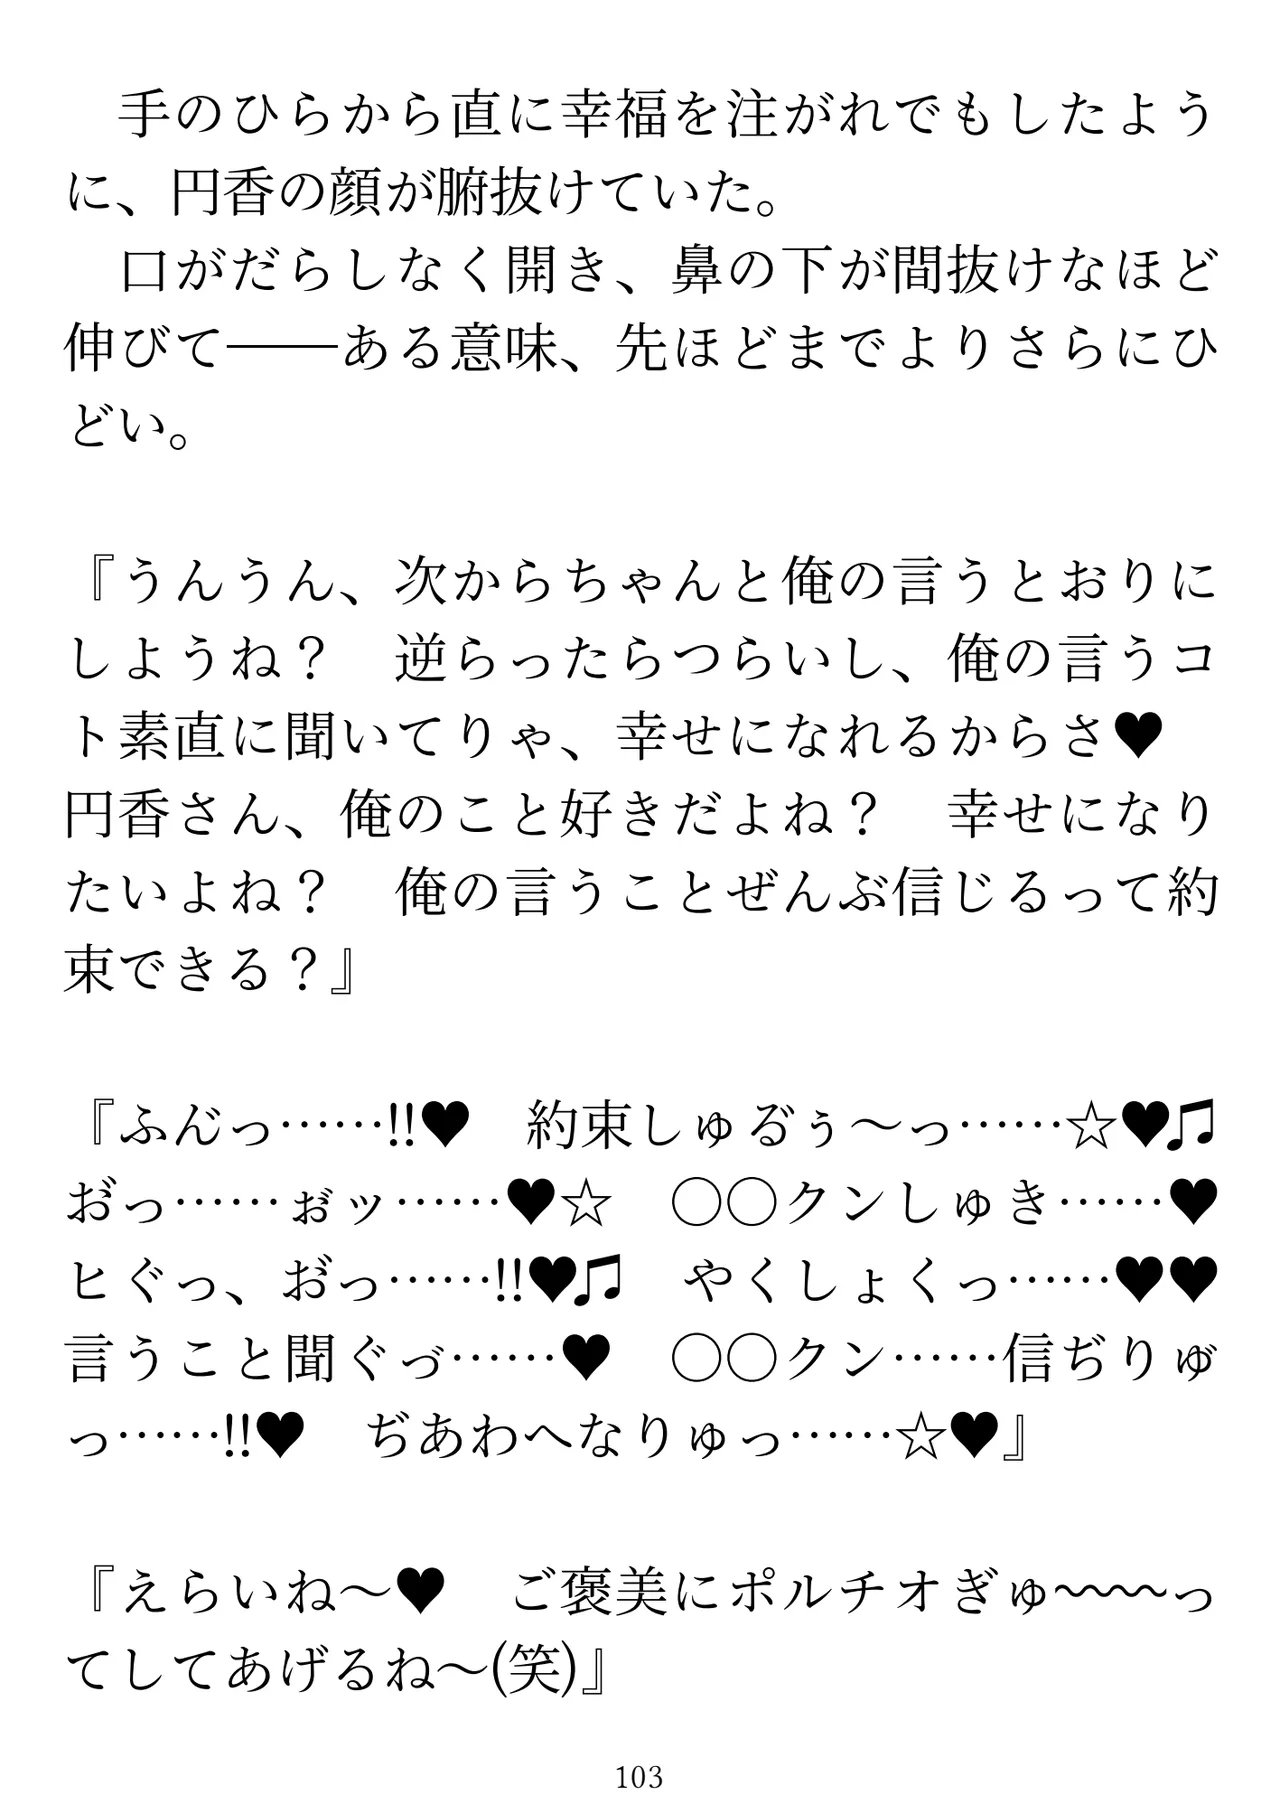 手のひらから直に幸福を注がれでもしたよう
に、円香の顔が腑抜けていた。
　口がだらしなく開き、鼻の下が間抜けなほど
伸びて――ある意味、先ほどまでよりさらにひ
どい。
『うんうん、次からちゃんと俺の言うとおりに
しようね？　逆らったらつらいし、俺の言うコ
ト素直に聞いてりゃ、幸せになれるからさ♥
円香さん、俺のこと好きだよね？　幸せになり
たいよね？　俺の言うことぜんぶ信じるって約
束できる？』
『ふんっ……!!♥　約束しゅるぅ～っ……☆♥♫
お゙っ……ぉ゙ッ……♥☆　○○クンしゅき……♥
ヒぐっ、お゙っ……!!♥♫　やくしょくっ……♥♥
言うこと聞ぐっ゙……♥　○○クン……信ぢりゅ゙
っ……!!♥　ぢあわへなりゅっ……☆♥』
『えらいね～♥　ご褒美にポルチオぎゅ～～～っ
てしてあげるね～(笑)』
103